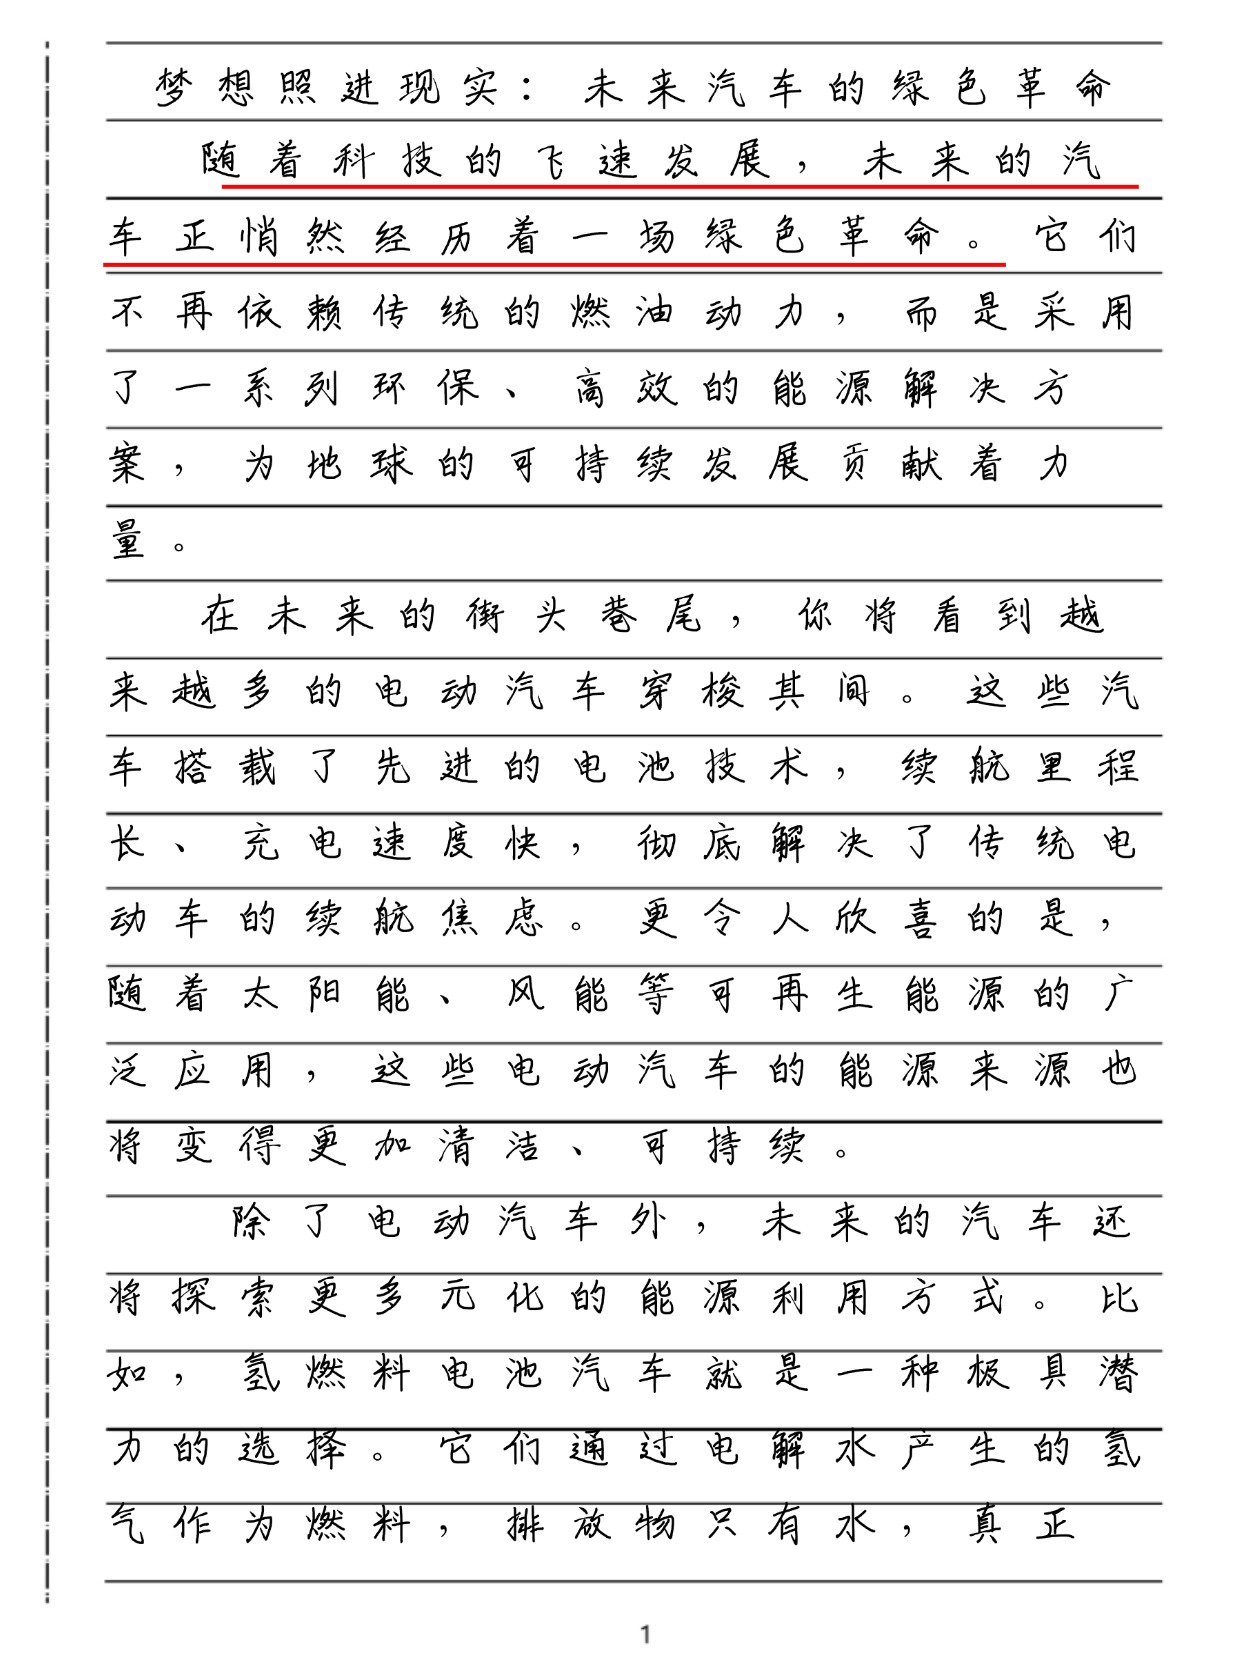 梦想照进现实：未来汽车的绿色革命
随着科技的飞速发展，未来的汽
车正悄然经历着一场绿色革命。它们
不再依赖传统的燃油动力，而是采用
了一系列环保、高效的能源解决方
案，为地球的可持续发展贡献着力
量。
在未来的街头巷尾，你将看到越
来越多的电动汽车穿梭其间。这些汽
车搭载了先进的电池技术，续航里程
长、充电速度快，彻底解决了传统电
动车的续航焦虑。更令人欣喜的是，
随着太阳能、风能等可再生能源的广
泛应用，这些电动汽车的能源来源也
将变得更加清洁、可持续。
除了电动汽车外，未来的汽车还
将探索更多元化的能源利用方式。比
如，氢燃料电池汽车就是一种极具潜
力的选择。它们通过电解水产生的氢
气作为燃料，排放物只有水，真正
1